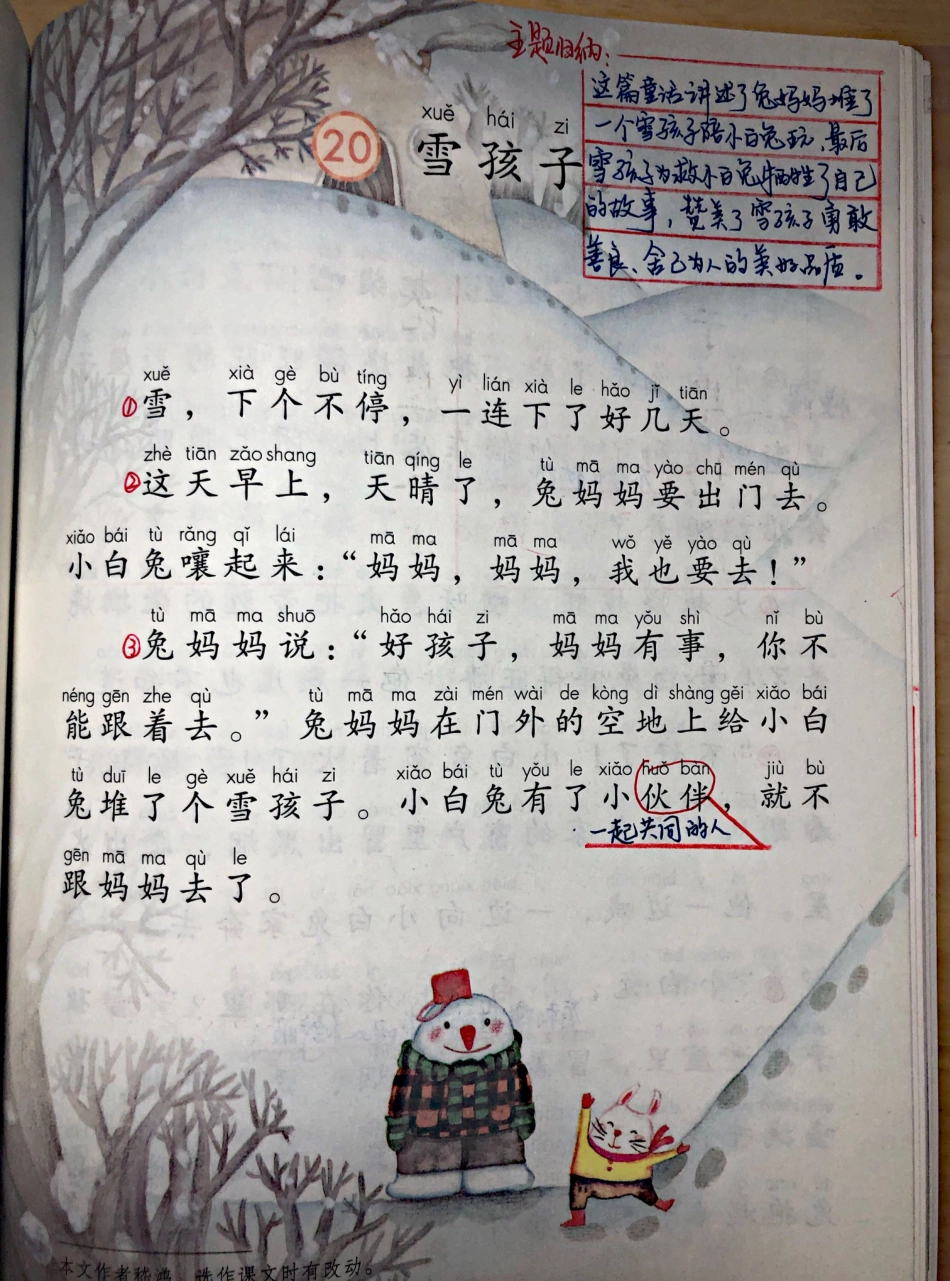 主题归纳：
这篇童话讲述了兔妈妈堆了
一个雪孩子陪小白兔玩,最后
雪孩子为救小白兔牺牲了自己
的故事，赞美了雪孩子勇敢
善良、舍己为人的美好品质。
xuě hái zi
20 雪孩子
xuě xià gè bù tíng yì lián xià le hǎo jǐ tiān
①雪，下个不停，一连下了好几天。
zhè tiān zǎo shang tiān qíng le tù mā ma yào chū mén qù
②这天早上，天晴了，兔妈妈要出门去。
xiǎo bái tù rǎng qǐ lái mā ma mā ma wǒ yě yào qù
小白兔嚷起来：“妈妈，妈妈，我也要去！”
tù mā ma shuō hǎo hái zi mā ma yǒu shì nǐ bù
③兔妈妈说：“好孩子，妈妈有事，你不
néng gēn zhe qù tù mā ma zài mén wài de kòng dì shàng gěi xiǎo bái
能跟着去。”兔妈妈在门外的空地上给小白
tù duī le gè xuě hái zi xiǎo bái tù yǒu le xiǎo huǒ bàn jiù bù
兔堆了个雪孩子。小白兔有了小伙伴，就不
一起共同的人
gēn mā ma qù le
跟妈妈去了。
本文作者嵇鸿，选作课文时有改动。